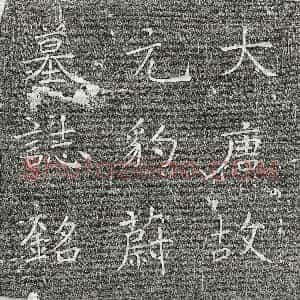 大唐故
元豹蔚
墓誌銘